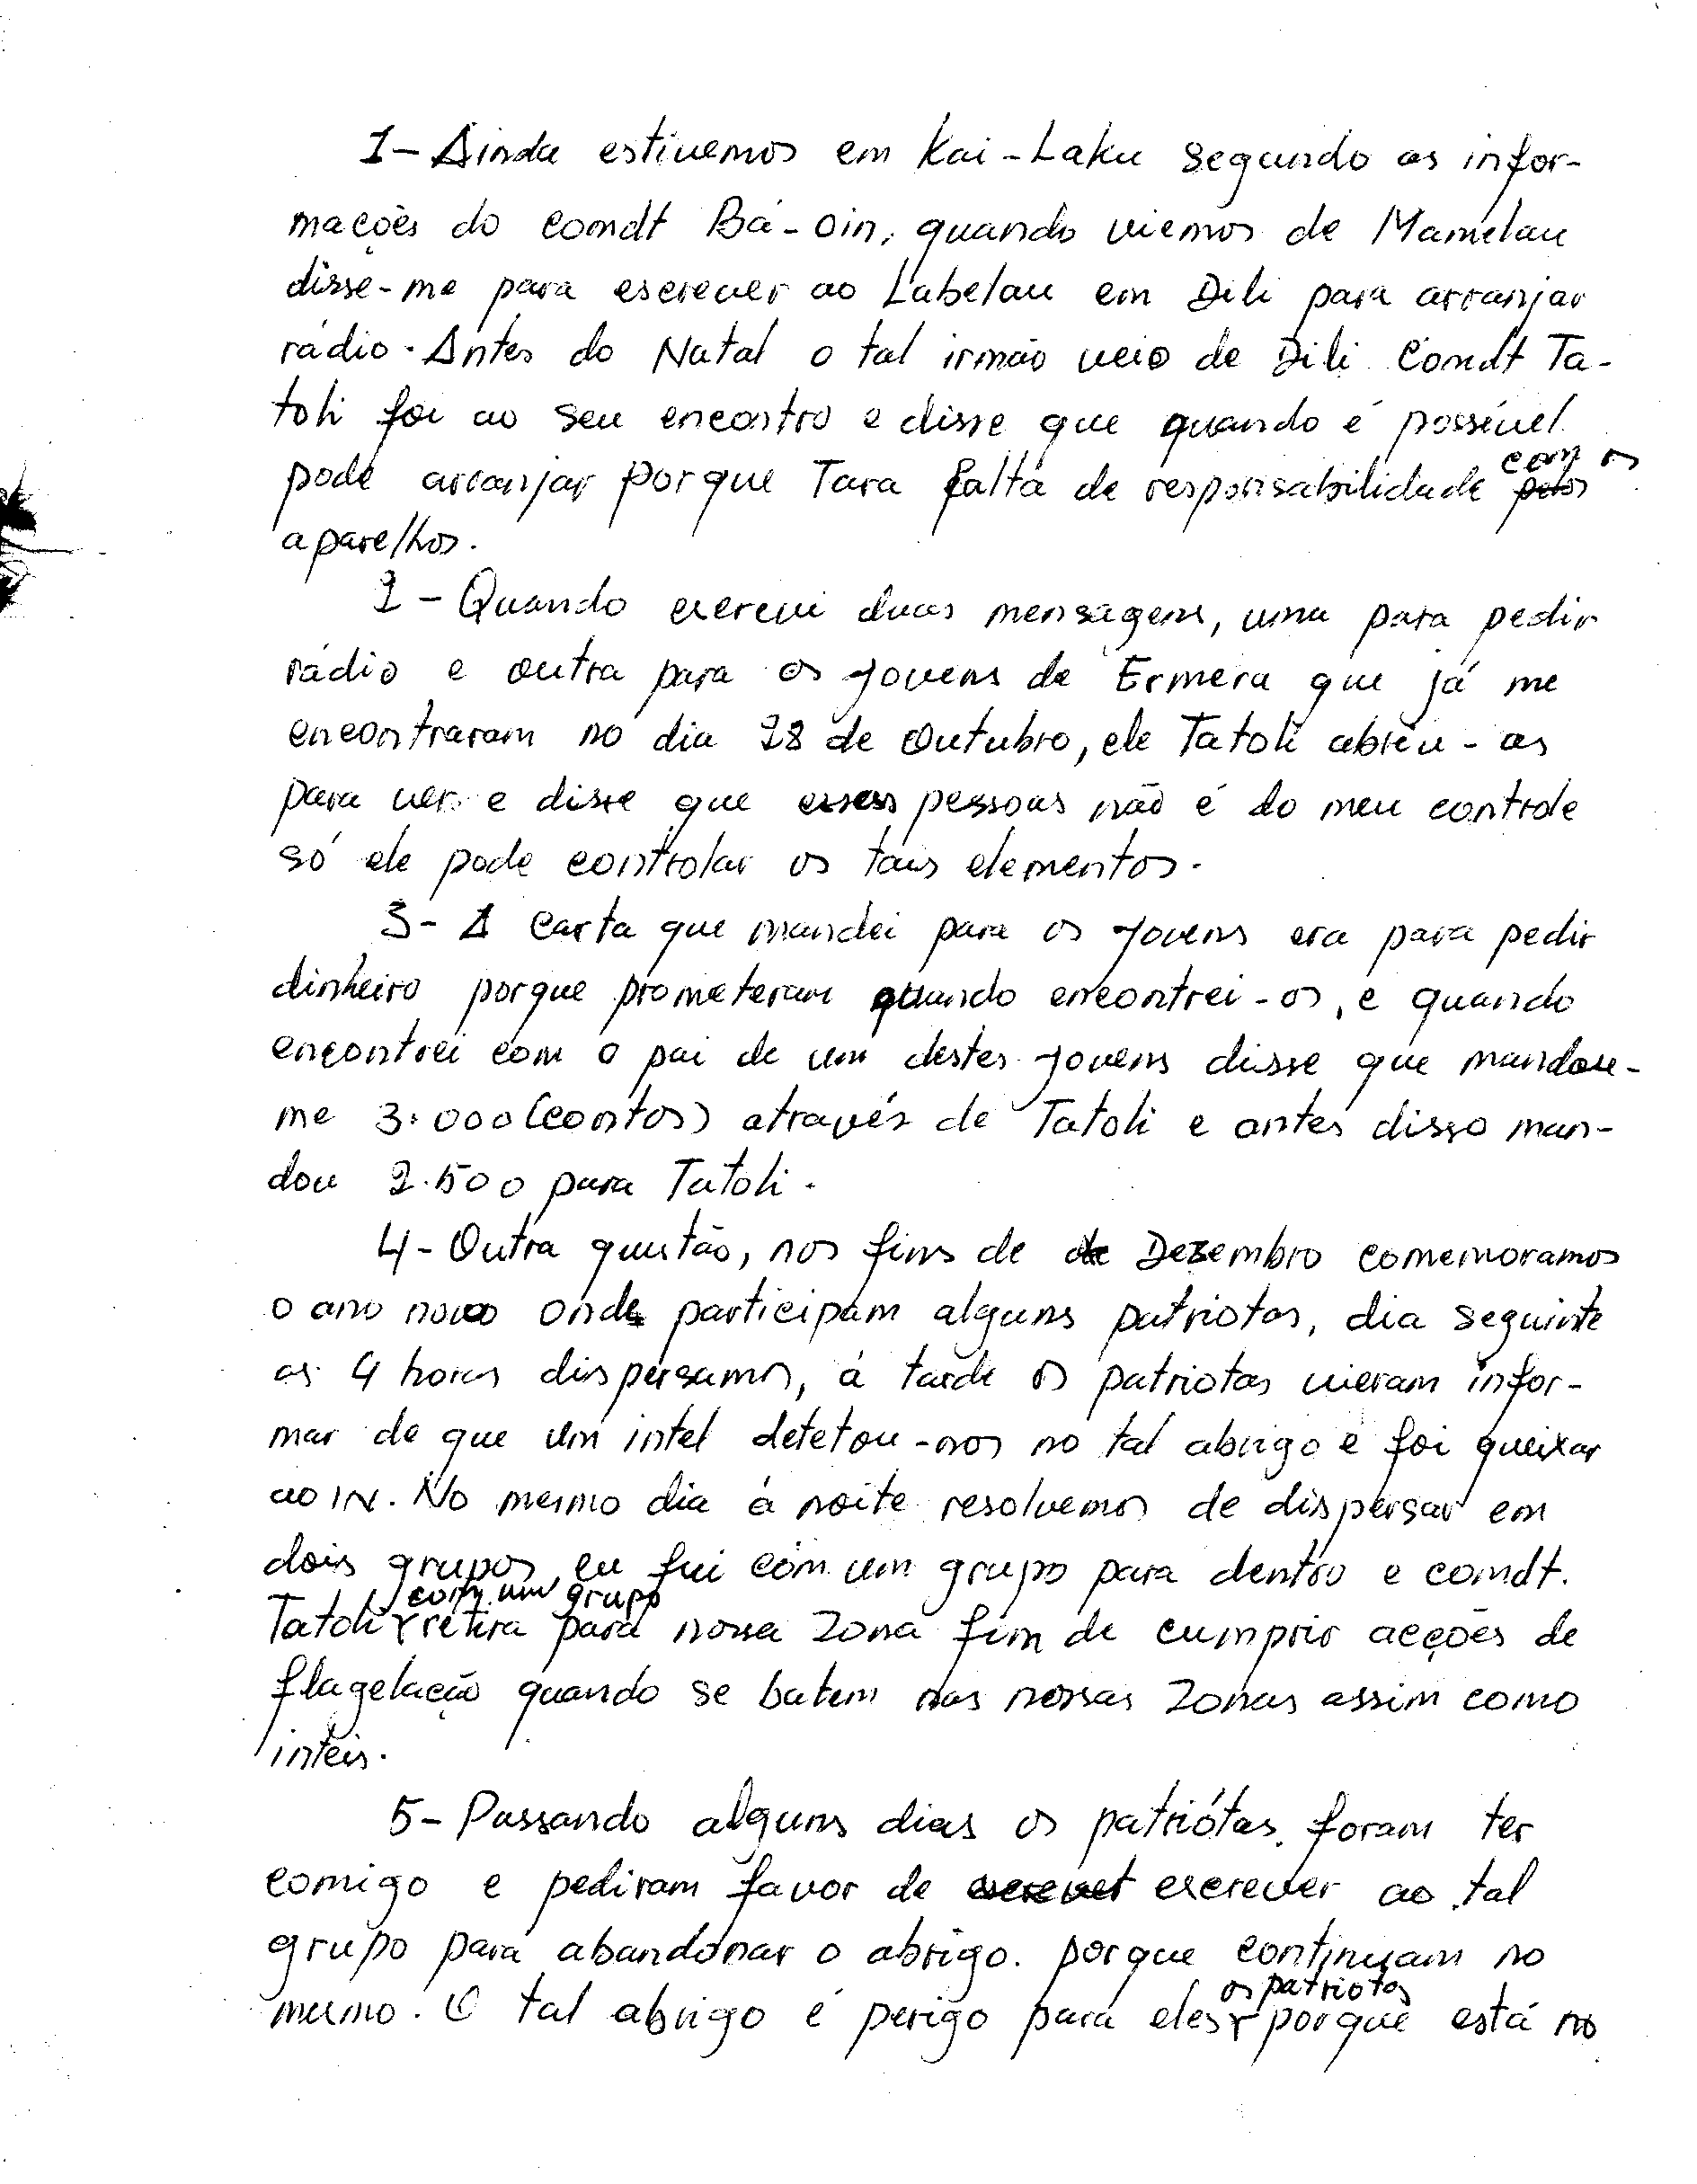 1- Ainda estivemos em Kai-Laku segundo as infor-
mações do comdt Bá-oin, quando viemos de Mamelau
disse-me para escrever ao Labelau em Dili para arranjar
rádio. Antes do Natal o tal irmão veio de Dili Comdt Ta-
toli foi ao seu encontro e disse que quando é possível
pode arranjar porque Tara falta de responsabilidade com os pelos
aparelhos.
2- Quando escrevi duas mensagens, uma para pedir
rádio e outra para os jovens de Ermera que já me
encontraram no dia 28 de Outubro, ele Tatoli abriu-as
para ver e disse que essas pessoas não é do meu controle
só ele pode controlar os tais elementos.
3- A carta que mandei para os jovens era para pedir
dinheiro porque prometeram quando encontrei-os, e quando
encontrei com o pai de um destes jovens disse que mandou-
me 3.000 (contos) através de Tatoli e antes disso man-
dou 2.500 para Tatoli.
4- Outra questão, nos fins de de Dezembro comemoramos
o ano novo onde participam alguns patriotas, dia seguinte
as 4 horas dispersamos, á tarde os patriotas vieram infor-
mar de que um intel detetou-nos no tal abrigo e foi queixar
ao IN. No mesmo dia á noite resolvemos de dispersar em
dois grupos, eu fui com um grupo para dentro e comdt.
Tatoli com um grupo retira para nossa zona fim de cumprir acções de
flagelação quando se batem nas nossas zonas assim como
inteis.
5- Passando alguns dias os patriótas foram ter
comigo e pediram favor de escrever escrever ao tal
grupo para abandonar o abrigo. porque continuam no
mesmo. O tal abrigo é perigo para eles os patriotas porque está no